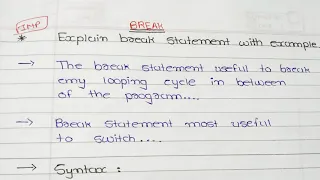 BREAK
IMP
* Explain break statement with example.
→ The break statement useful to break
any looping cycle in between
of the program....
→ Break statement most useful
to switch....
→ Syntax :